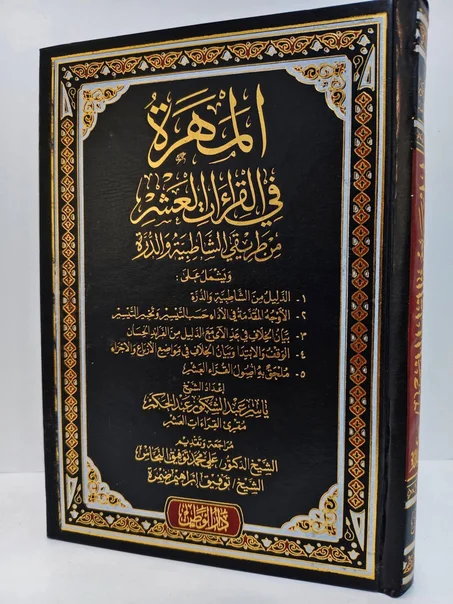 المهرة
في القراءات العشر
من طريقي الشاطبية والدرة
ويشمل على:
١- الدليل من الشاطبية والدرة
٢- الأوجه المقدمة في الأداء حسب التيسير وتحبير التيسير
٣- بيان الخلاف في عد الآي مع الدليل من الفرائد الحسان
٤- الوقف والابتداء وبيان الخلاف في مواضع الأرباع والأجزاء
٥- ملحق به أصول القراء العشر
إعداد الشيخ
ياسر عبد الشكور عبد الحكم
مقرئ القراءات العشر
مراجعة وتقديم
الشيخ الدكتور / علي محمد توفيق النحاس
الشيخ / توفيق إبراهيم ضمرة